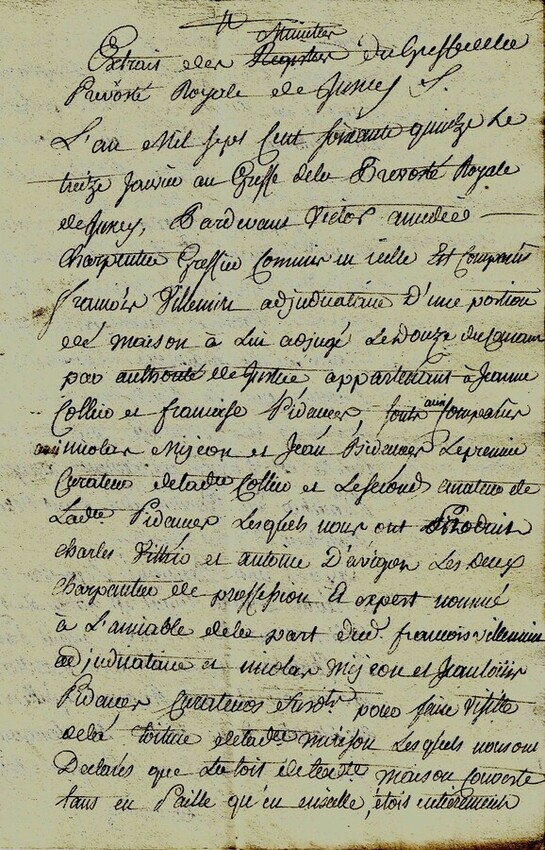 Minutes
Extrait des Registres du Greffe de la
Prevosté Royale de Jussey
L'an Mil sept Cent soixante quinze Le
treize Janvier au Greffe dela Prevosté Royale
de Jussey, Pardevant Victor amedée
charpentier Greffier Commis en icelle Est Comparus
françois Villemin adjudicataire D'une portion
de maison à Lui adjugé Le douze du Courant
par authorité de Justice appartenant à Jeanne
Collin et françoise Pidancer, sont aussi Comparus
nicolas mijeon et Jean Pidancer Le premier
Curateur de ladte Collin et Le second curateur de
Ladte Pidancer Lesquels nous ont Produit
charles et antoine D'avignon Les deux
charpentier de proffession Et expert nommé
à L'amiable de la part dud. françois villemin
adjudicataire et nicolas Mijeon et Jean louis
Pidancer Curateurs pour faire visitte
dela toiture de ladte maison Lesquels nous ont
Declarés que Le toit de ladte maison Couverte
tans en Paille qu'en , étois entierement